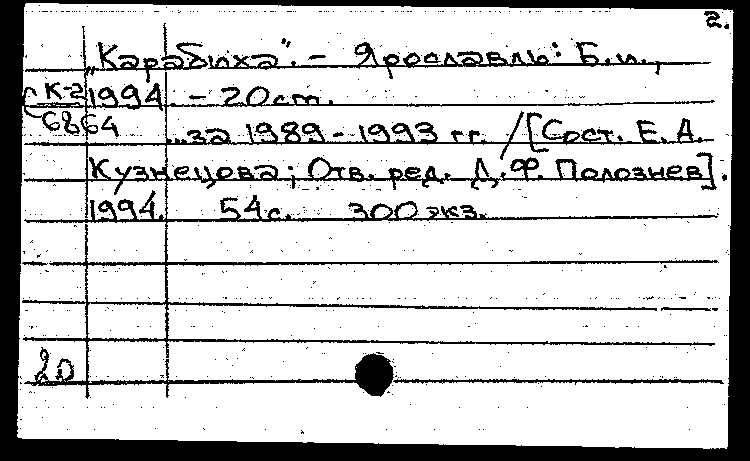 2.
„Карабиха“. – Ярославль: Б.и.,
К-2 1994. – 20 ст.
6864 ...за 1989-1993 гг. / [Сост. Е. А.
Кузнецова; Отв. ред. Д.Ф. Полознев].
1994. 54 с. 300 экз.
20